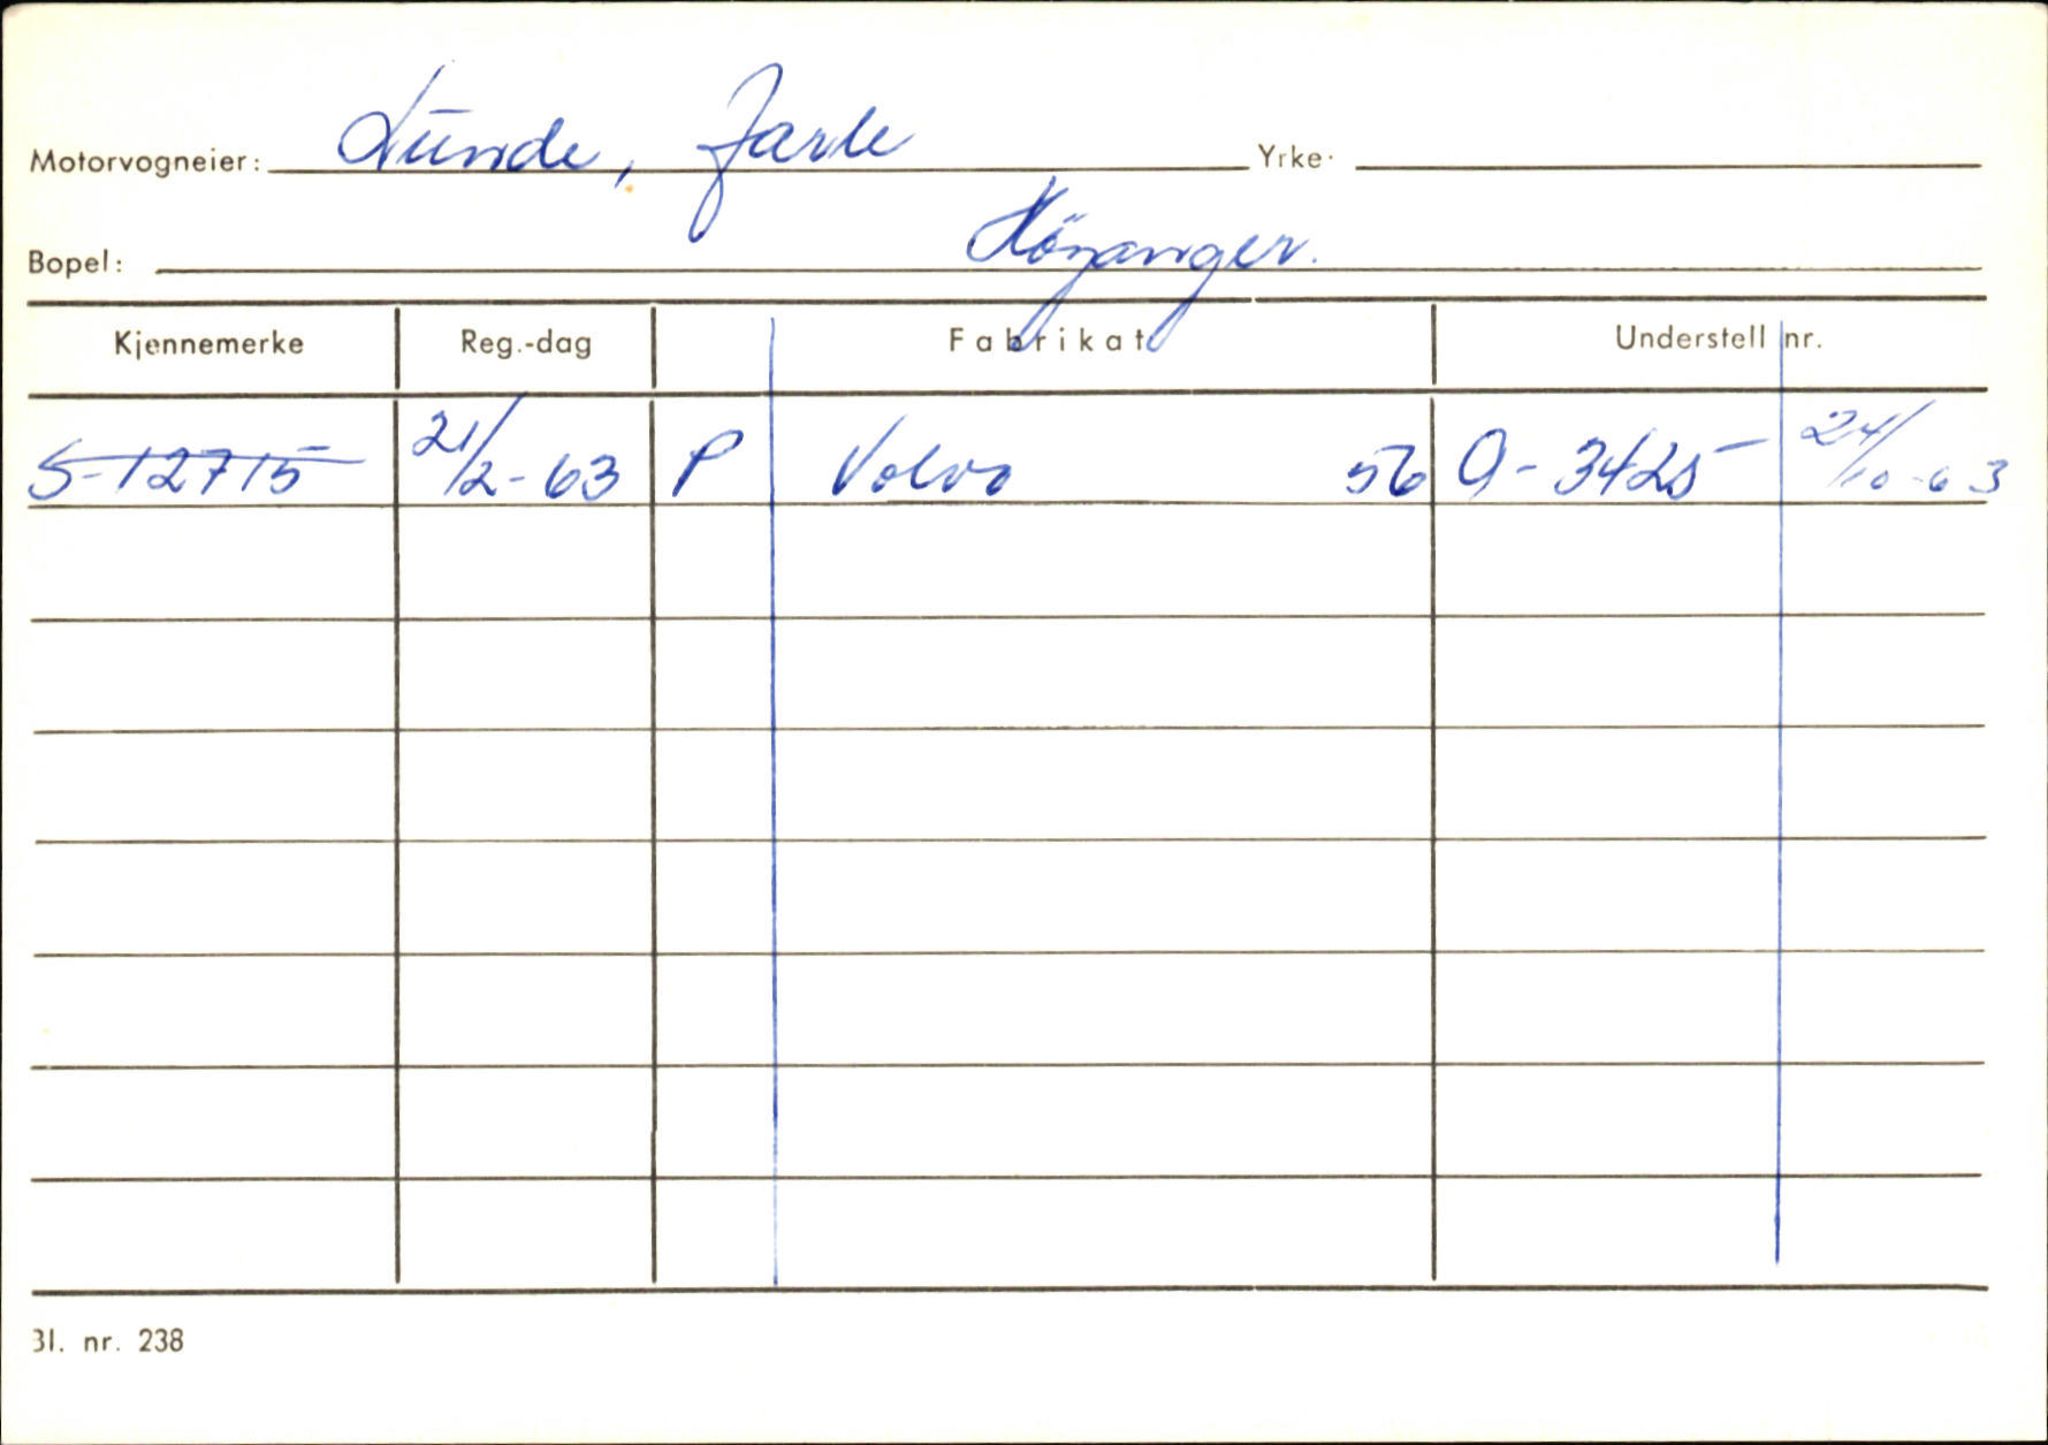 Motorvogneier: Lunde, Jarle Yrke.
Bopel: Höyanger.
Kjennemerke Reg.-dag Fabrikat Understell nr.
S-12715 21/2-63 P Volvo 56 9-3425 24/10-63
Bl. nr. 238